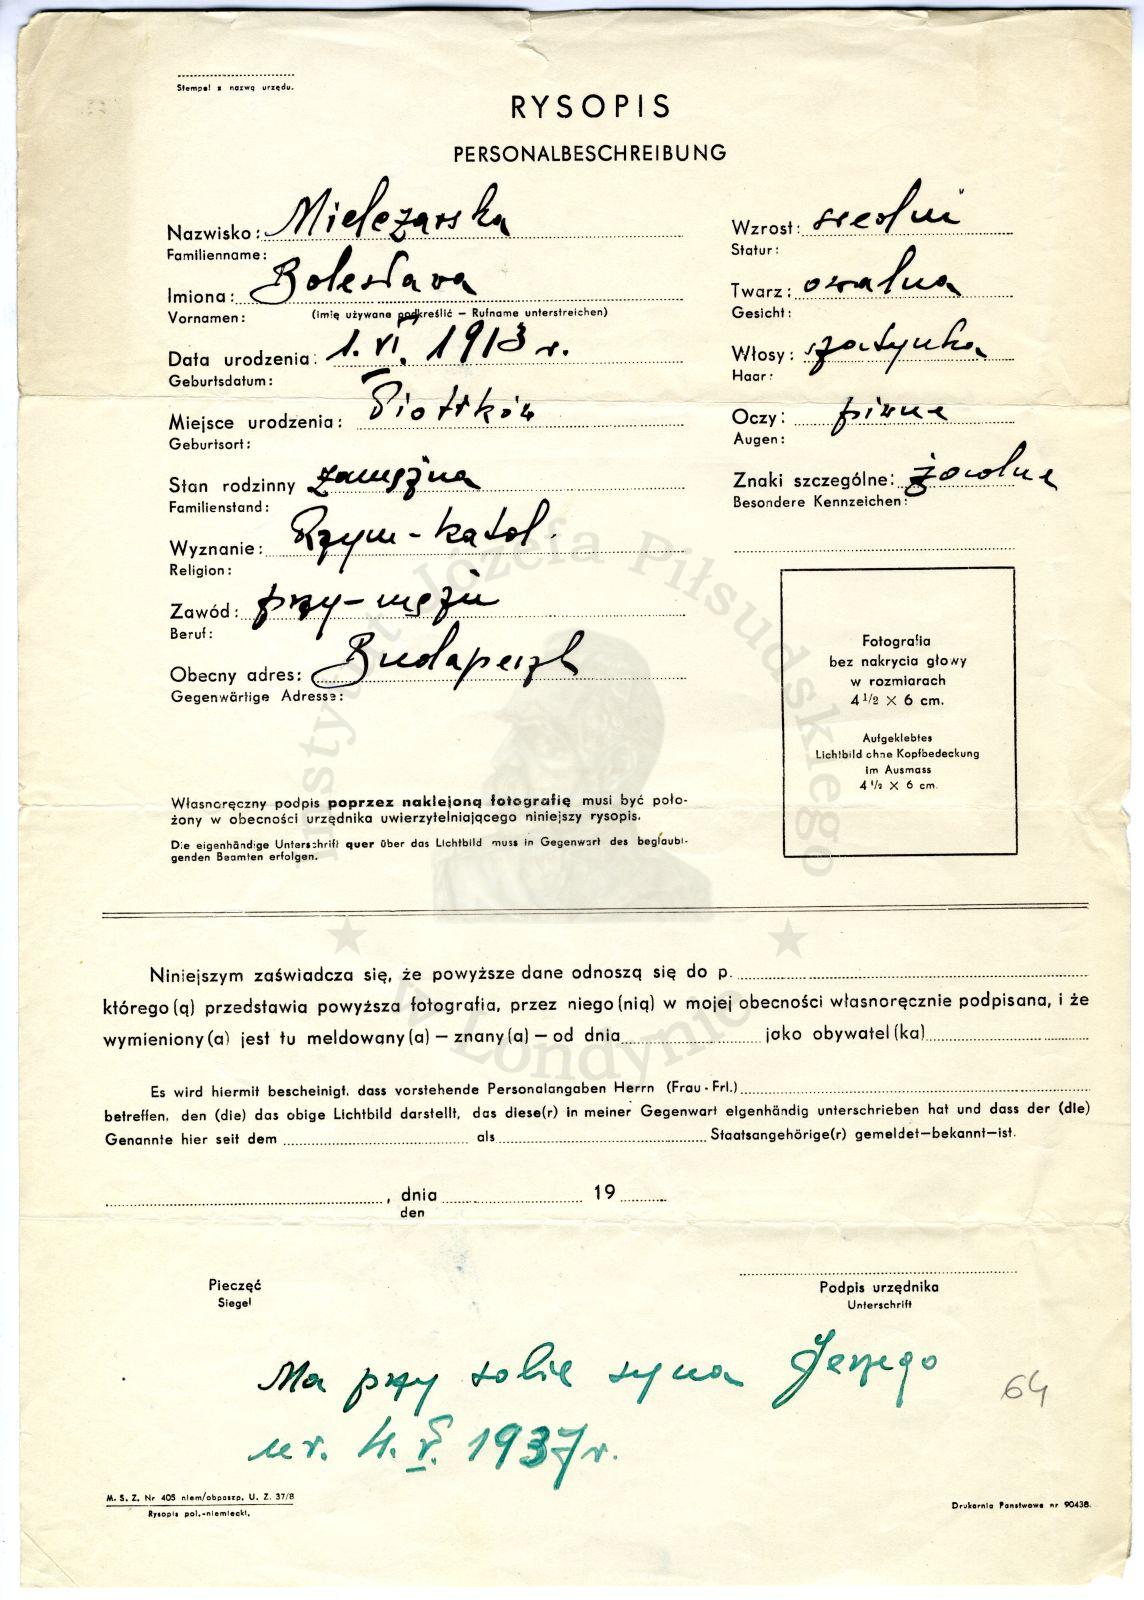 Stempel z nazwą urzędu.
RYSOPIS
PERSONALBESCHREIBUNG
Nazwisko: Mielczarska
Familienname:
Imiona: Bolesława
Vornamen: (imię używane podkreślić – Rufname unterstreichen)
Data urodzenia: 1. VI. 1913 r.
Geburtsdatum:
Miejsce urodzenia: Piotrków
Geburtsort:
Stan rodzinny zamężna
Familienstand:
Wyznanie: Rzym-katol.
Religion:
Zawód: przy-mężu
Beruf:
Obecny adres: Budapeszt
Gegenwärtige Adresse:
Wzrost: średni
Statur:
Twarz: owalna
Gesicht:
Włosy: szatynka
Haar:
Oczy: piwne
Augen:
Znaki szczególne: żadne
Besondere Kennzeichen:
Fotografia
bez nakrycia głowy
w rozmiarach
4 1/2 × 6 cm.
Aufgeklebtes
Lichtbild ohne Kopfbedeckung
im Ausmass
4 1/2 × 6 cm.
Własnoręczny podpis poprzez naklejoną fotografię musi być poło-
żony w obecności urzędnika uwierzytelniającego niniejszy rysopis.
Die eigenhändige Unterschrift quer über das Lichtbild muss in Gegenwart des beglaubi-
genden Beamten erfolgen.
Niniejszym zaświadcza się, że powyższe dane odnoszą się do p.
którego (ą) przedstawia powyższa fotografia, przez niego (nią) w mojej obecności własnoręcznie podpisana, i że
wymieniony (a) jest tu meldowany (a) – znany (a) – od dnia jako obywatel (ka)
Es wird hiermit bescheinigt, dass vorstehende Personalangaben Herrn (Frau - Frl.)
betreffen, den (die) das obige Lichtbild darstellt, das diese(r) in meiner Gegenwart eigenhändig unterschrieben hat und dass der (die)
Genannte hier seit dem als Staatsangehörige(r) gemeldet–bekannt–ist.
, dnia 19
den
Pieczęć
Siegel
Podpis urzędnika
Unterschrift
Ma przy sobie syna Jerzego
ur. 4. V. 1937 r.
64
M. S. Z. Nr 405 niem/obpaszp. U. Z. 37/8
Rysopis pol.-niemiecki.
Drukarnia Państwowa nr 90438.
Instytut Józefa Piłsudskiego
w Londynie